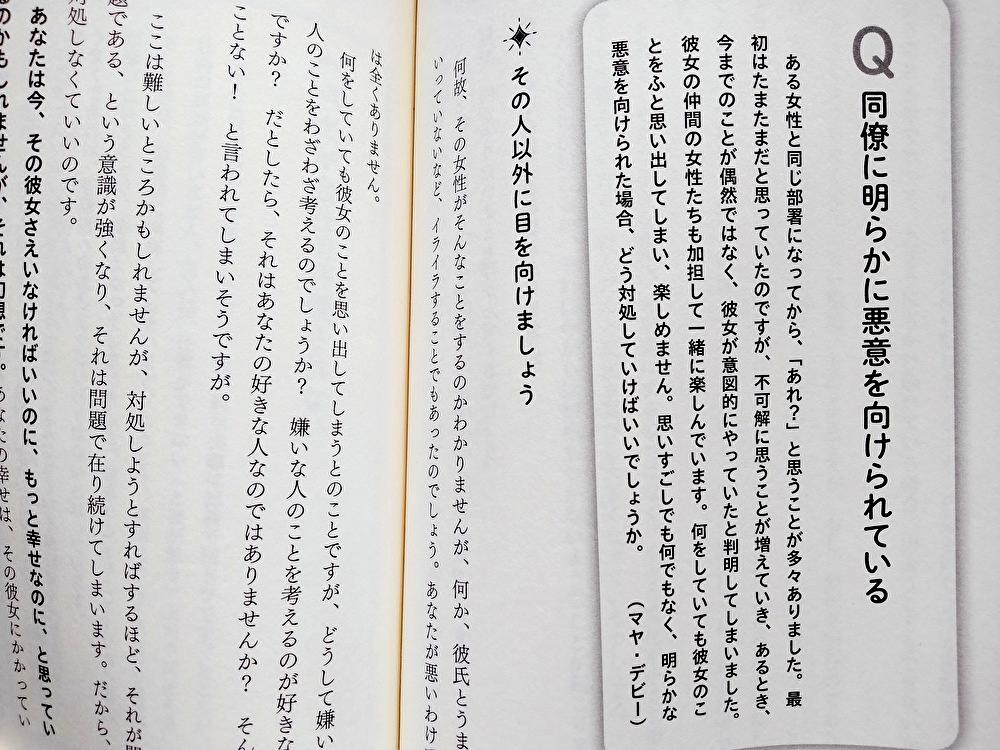 Q
同僚に明らかに悪意を向けられている
ある女性と同じ部署になってから、「あれ?」と思うことが多々ありました。最
初はたまたまだと思っていたのですが、不可解に思うことが増えていき、あるとき、
今までのことが偶然ではなく、彼女が意図的にやっていたと判明してしまいました。
彼女の仲間の女性たちも加担して一緒に楽しんでいます。何をしていても彼女のこ
とをふと思い出してしまい、楽しめません。思いすごしでも何でもなく、明らかな
悪意を向けられた場合、どう対処していけばいいでしょうか。
(マヤ・デビー)
その人以外に目を向けましょう
何故、その女性がそんなことをするのかわかりませんが、何か、彼氏とうま
いっていないなど、イライラすることでもあったのでしょう。あなたが悪いわけ
は全くありません。
何をしていても彼女のことを思い出してしまうとのことですが、どうして嫌い
人のことをわざわざ考えるのでしょうか? 嫌いな人のことを考えるのが好きな
ですか? だとしたら、それはあなたの好きな人なのではありませんか? そん
ことない! と言われてしまいそうですが。
ここは難しいところかもしれませんが、対処しようとすればするほど、それが問
題である、という意識が強くなり、それは問題で在り続けてしまいます。だから、
対処しなくていいのです。
あなたは今、その彼女さえいなければいいのに、もっと幸せなのに、と思ってい
るのかもしれませんが、それは幻想です。あなたの幸せは、その彼女にかかってい